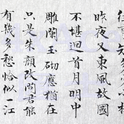 往事知多少小
昨夜又東風故國
不堪回首月明中
雕闌玉砌應猶在
只是朱顏改問君能
有幾多愁恰似一江